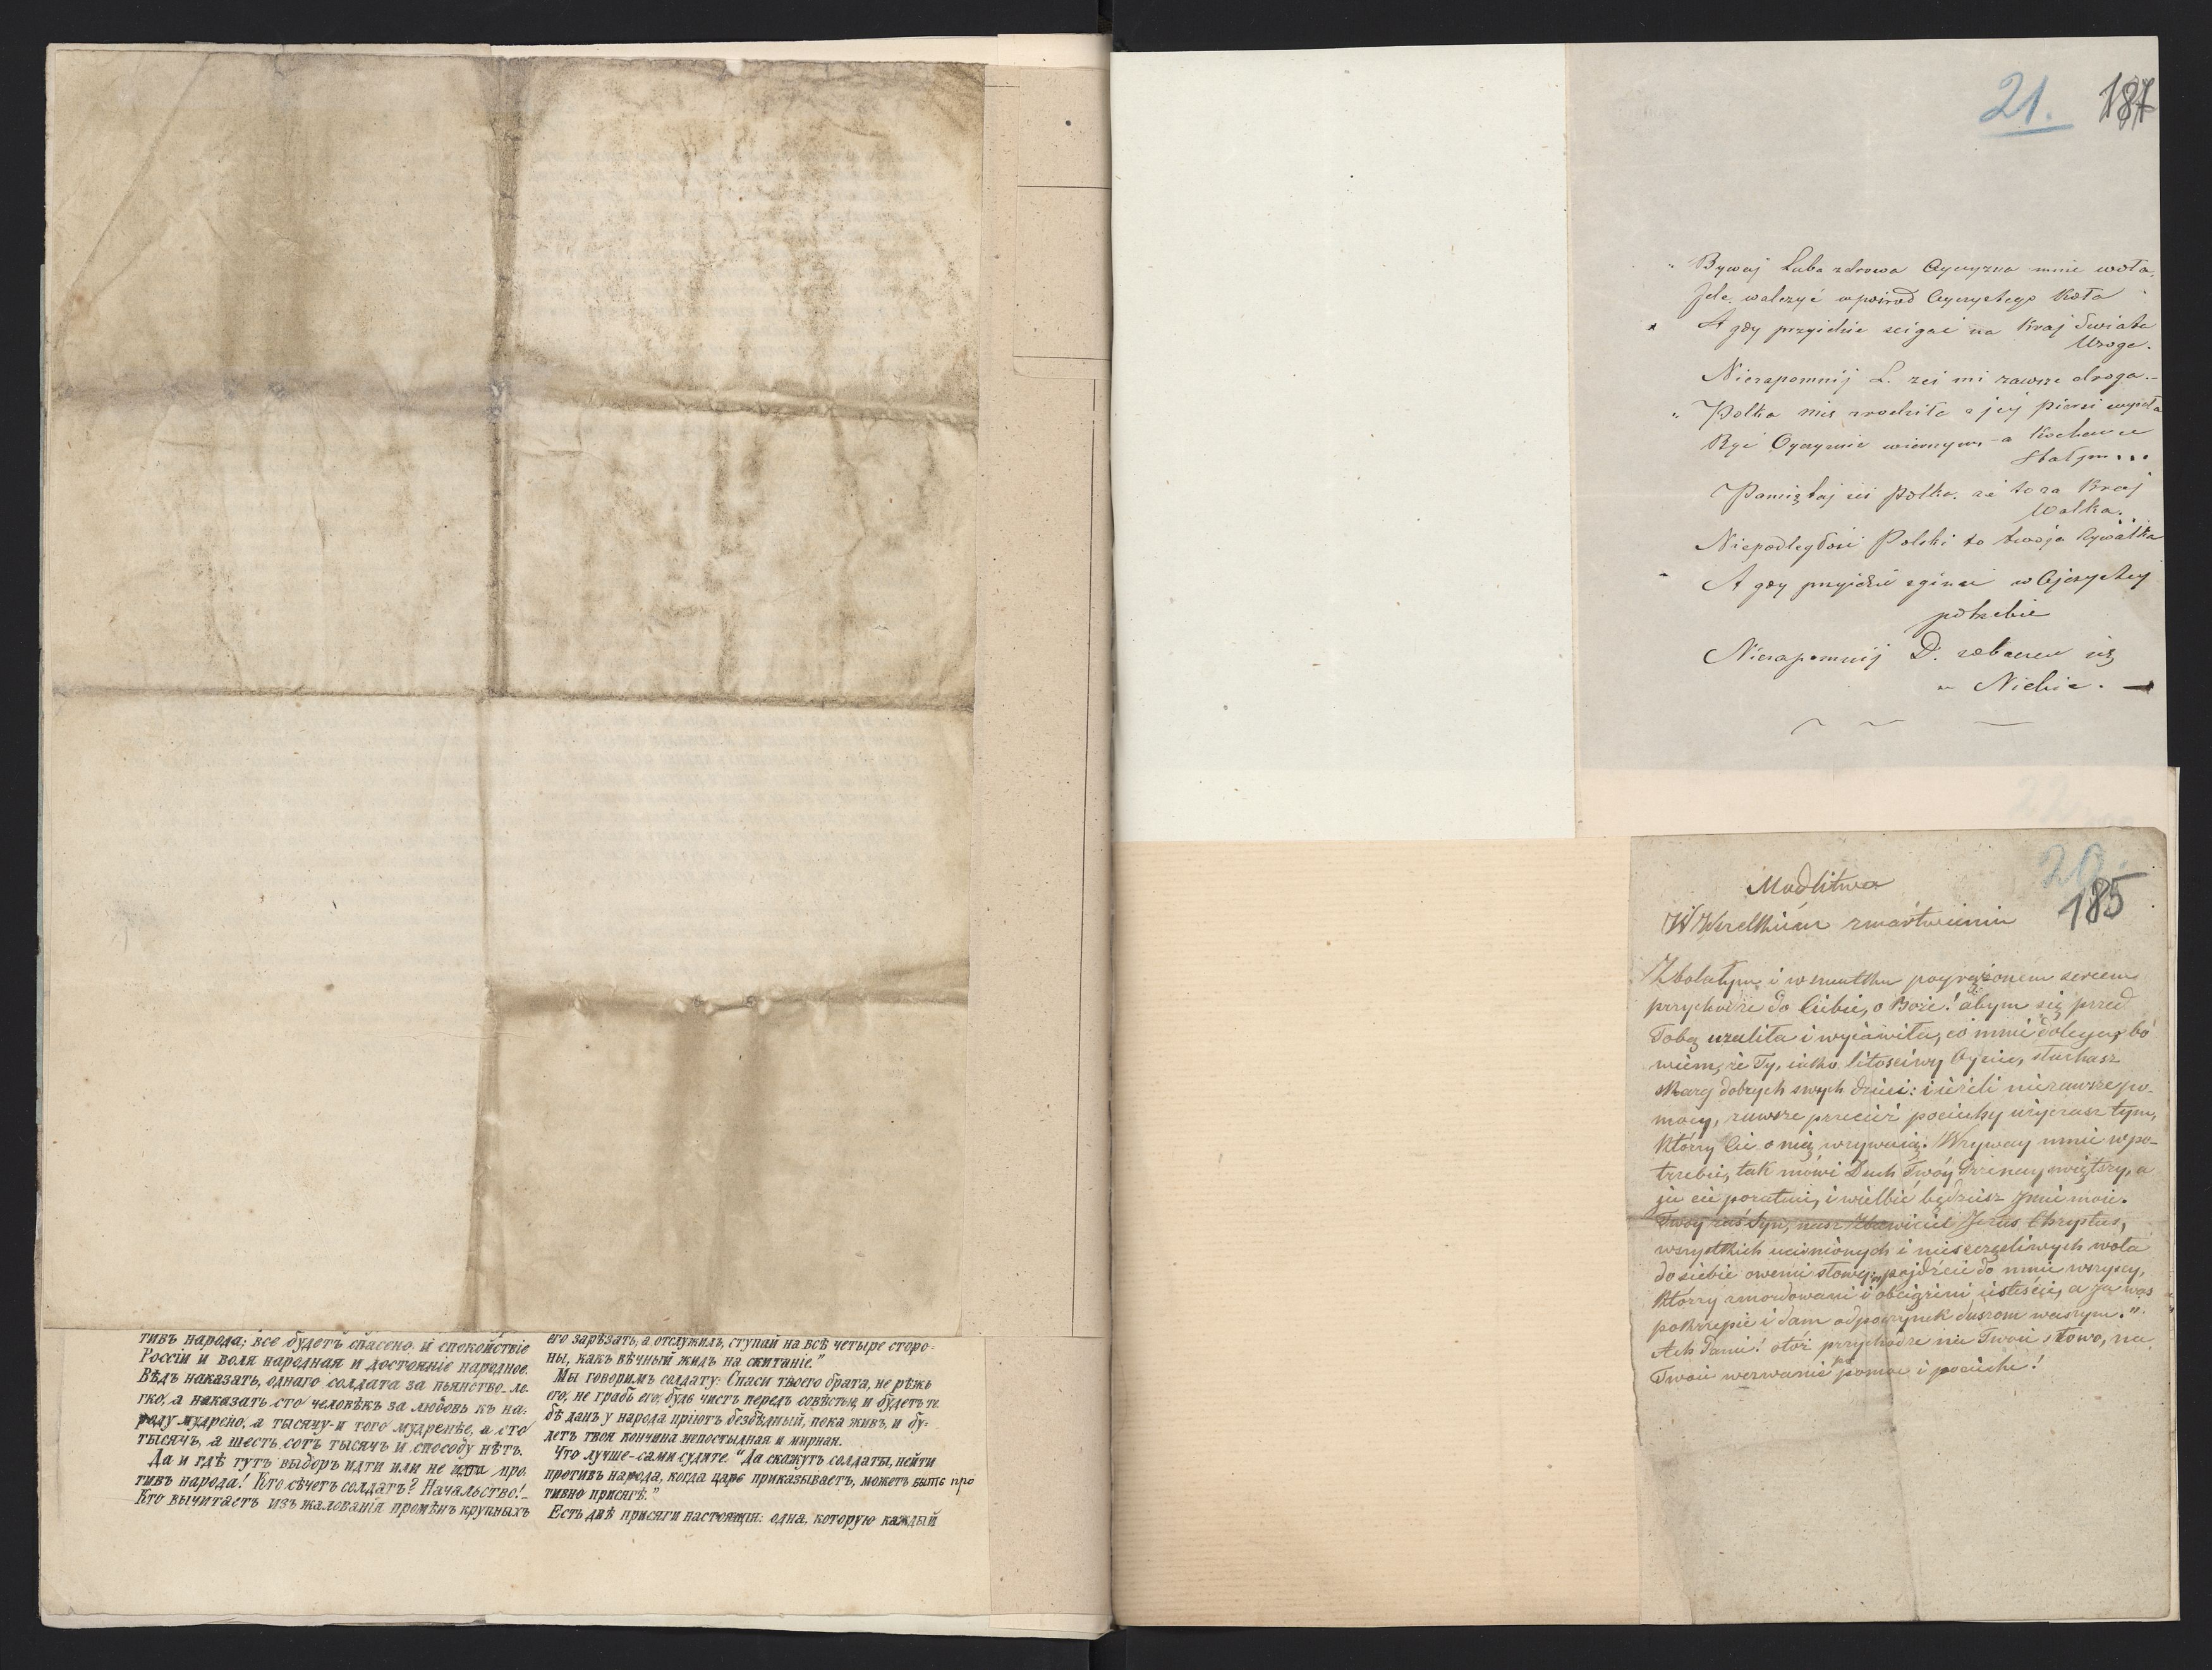 тивъ народа; все будетъ спасено, и спокойствіе
Россіи и воля народная и достояніе народное.
Вѣдь наказать, однаго солдата за пьянство-ле-
гко, а наказать сто человѣкъ за любовь къ на-
роду мудрено, а тысячу-и того мудренѣе, а сто
тысячъ, а шесть сотъ тысячъ и способу нѣтъ.
Да и гдѣ тутъ выборъ идти или не идти про-
тивъ народа! Кто сѣчетъ солдатъ? Начальство!-
Кто вычитаетъ изъ жалованія промѣнъ крупныхъ
его зарѣзать, а отслужилъ, ступай на всѣ четыре сторо-
ны, какъ вѣчный жидъ на скитаніе."
Мы говоримъ солдату: Спаси твоего брата, не рѣжь
его, не грабь его, будь чистъ передъ совѣстью, и будетъ те
бѣ данъ у народа пріютъ безбѣдный, пока живъ, и бу-
детъ твоя кончина непостыдная и мирная.
Что лучше-сами судите. "Да скажутъ солдаты, нейти
противъ народа, когда царь приказываетъ, можетъ быть про
тивно присягѣ."
Есть двѣ присяги настоящія: одна, которую каждый
21. 187
Bywaj Luba zdrowa Ojczyzna mnie woła.
Jdę walczyć wpośród Ojczystego Koła
A gdy przyidzie scigać na Kraj Swiata
Wroga.
Niezapomnij L. żeś mi zawsze droga.-
Polka mię zrodziła z jej piersi wyssałe
Być Ojczyznie wiernym - a Kochance
Stałym...
Pamiętaj żeś Polka. że to za Kraj
Walka.
Niepodległość Polski to twoja Rywalka
A gdy przyidzie zginąć w Ojczystej
potrzebie
Niezapomnij D. zobaczem się
w Niebie. —
20.
185
Modlitwa
W Wszelkiém zmartwieniu
Zbolałym i w smutku pogrążonem sercem
przychodzę do Ciebie, o Boże! abym się przed
Tobą użaliła i wyiawiła, co mnie dolega, bo
wiem, że Ty, iako litościwy Oycie, słuchasz
skarg dobrych swych dzieci: i ieżeli niezawsze po-
mocy, zawsze przecież pociechy użyczasz tym,
Którzy Cie o nią wzywaią. Wzyway mnie w po-
trzebie, tak mówi Duch Twóy Przenayswiętszy, a
ja cie poratuię, i wielbić będziesz Jmie moie.
Twóy zaś Syn, nasz Zbawiciel Jezus Chrystus,
wszystkich uciśnionych i nieszczęśliwych woła
do siebie owemi słowy: "pójdźcie do mnie wszyscy,
Którzy zmordowani i obciążeni iesteście, a Ja was
pokrzepie i dam odpoczynek duszom waszym."
Ach Panie! otóż przychodzę na Twoie słowo, na
Twoie wezwanie po pomoc i pociechę!